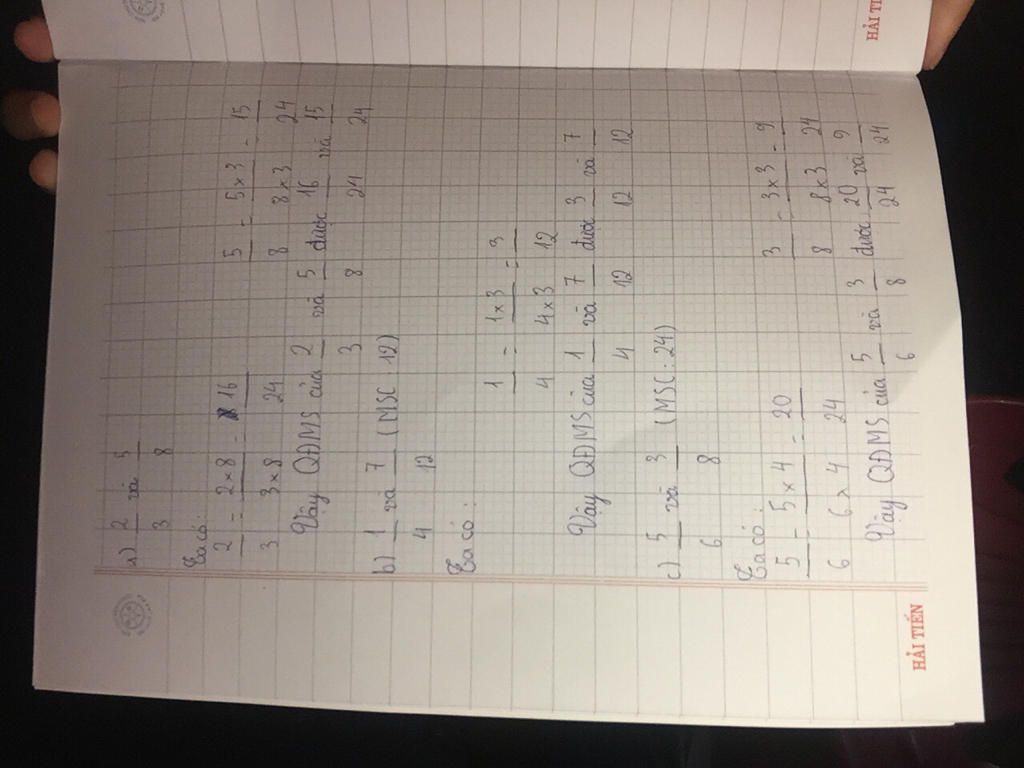 a) 2/3 và 5/8
Ta có:
2/3 = 2 x 8/3 x 8 = 16/24 5/8 = 5 x 3/8 x 3 = 15/24
Vậy QĐMS của 2/3 và 5/8 được 16/24 và 15/24
b) 1/4 và 7/12 (MSC: 12)
Ta có:
1/4 = 1 x 3/4 x 3 = 3/12
Vậy QĐMS của 1/4 và 7/12 được 3/12 và 7/12
c) 5/6 và 3/8 (MSC: 24)
Ta có:
5/6 = 5 x 4/6 x 4 = 20/24 3/8 = 3 x 3/8 x 3 = 9/24
Vậy QĐMS của 5/6 và 3/8 được 20/24 và 9/24
HẢI TIẾN
HẢI TI